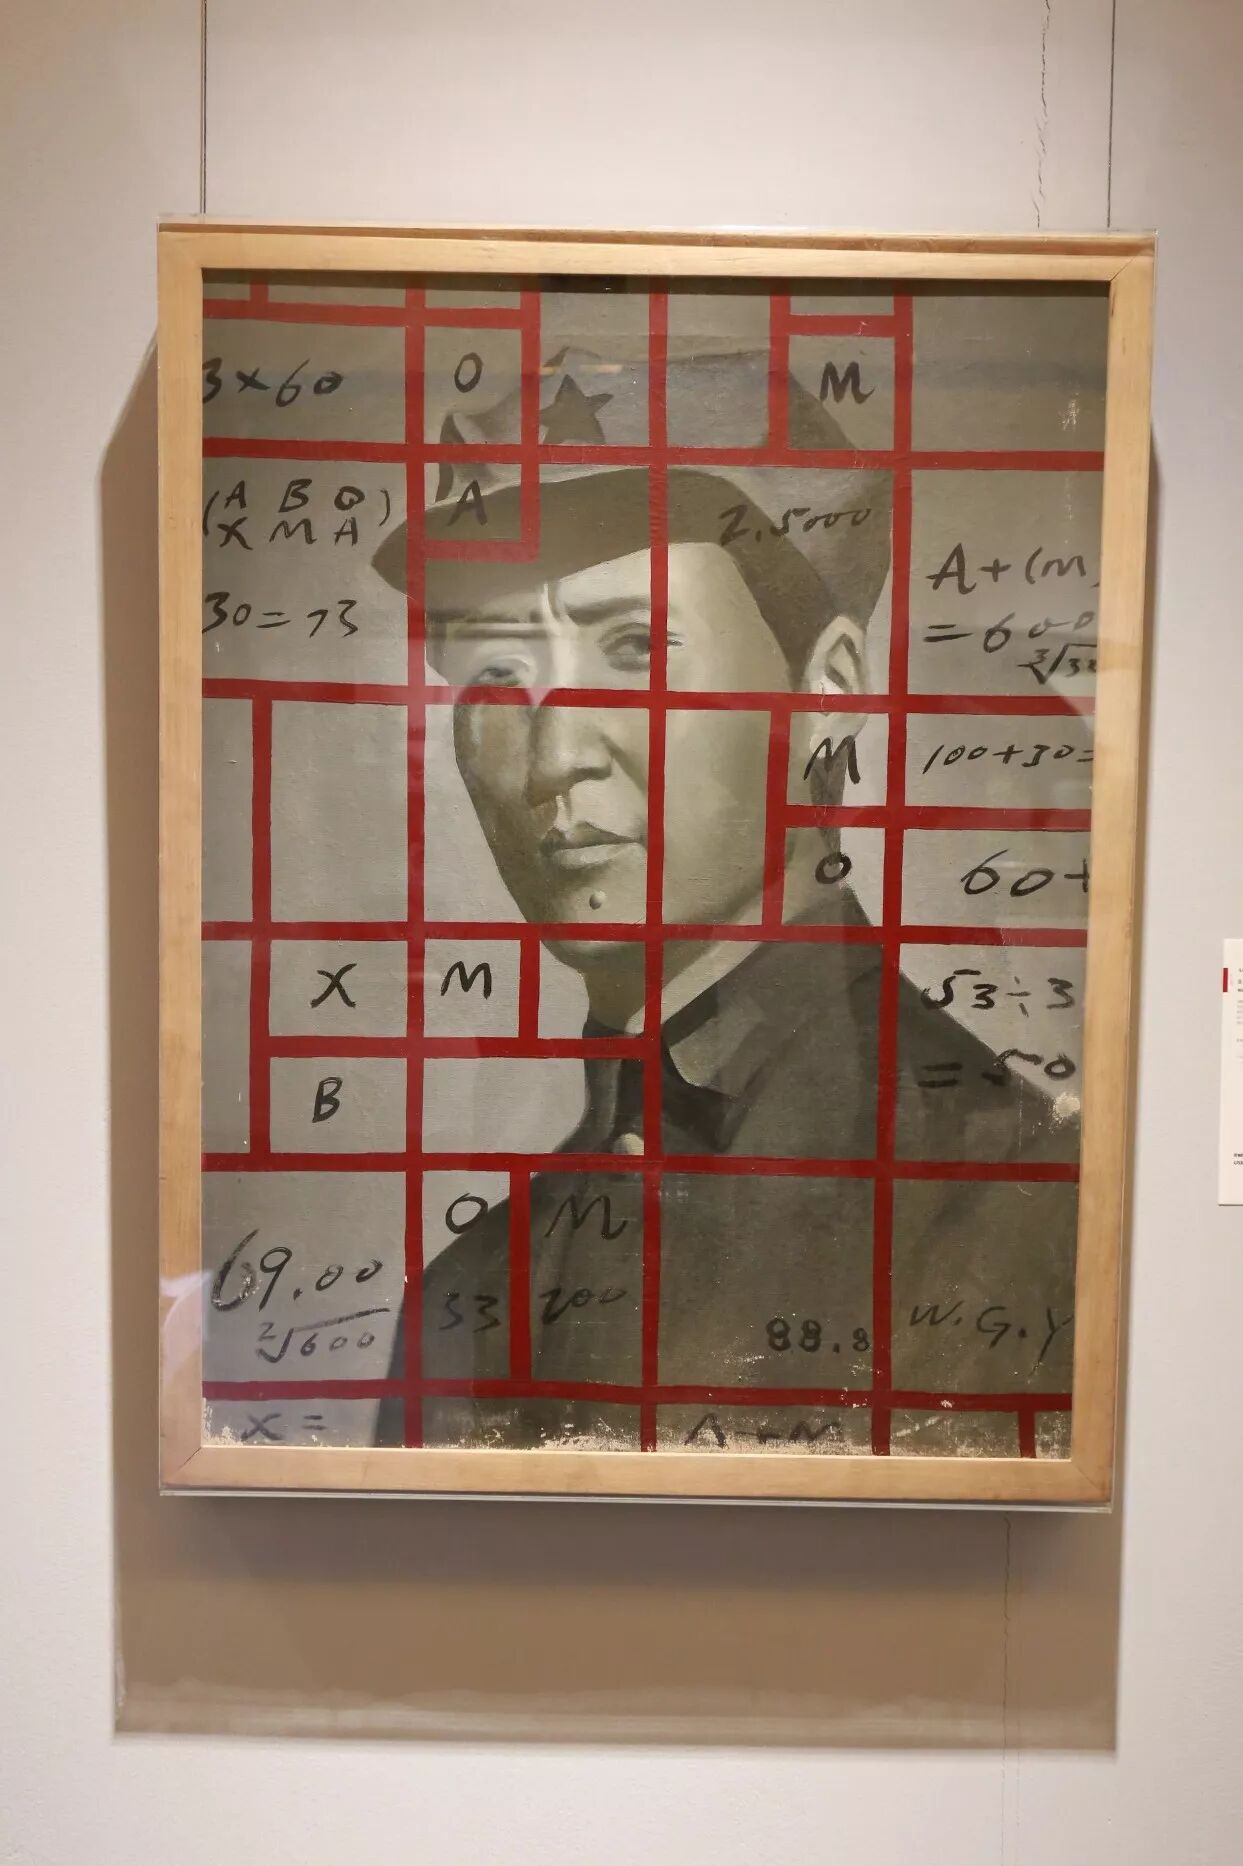 3×60
O
M
(A B O
X M A)
A
2.5000
30=73
A+(M
=600
3√3
M
100+30=
O
60+
X
M
53÷3
=50
B
O
M
69.00
2√600
33
200
88.8
W.G.Y
X=